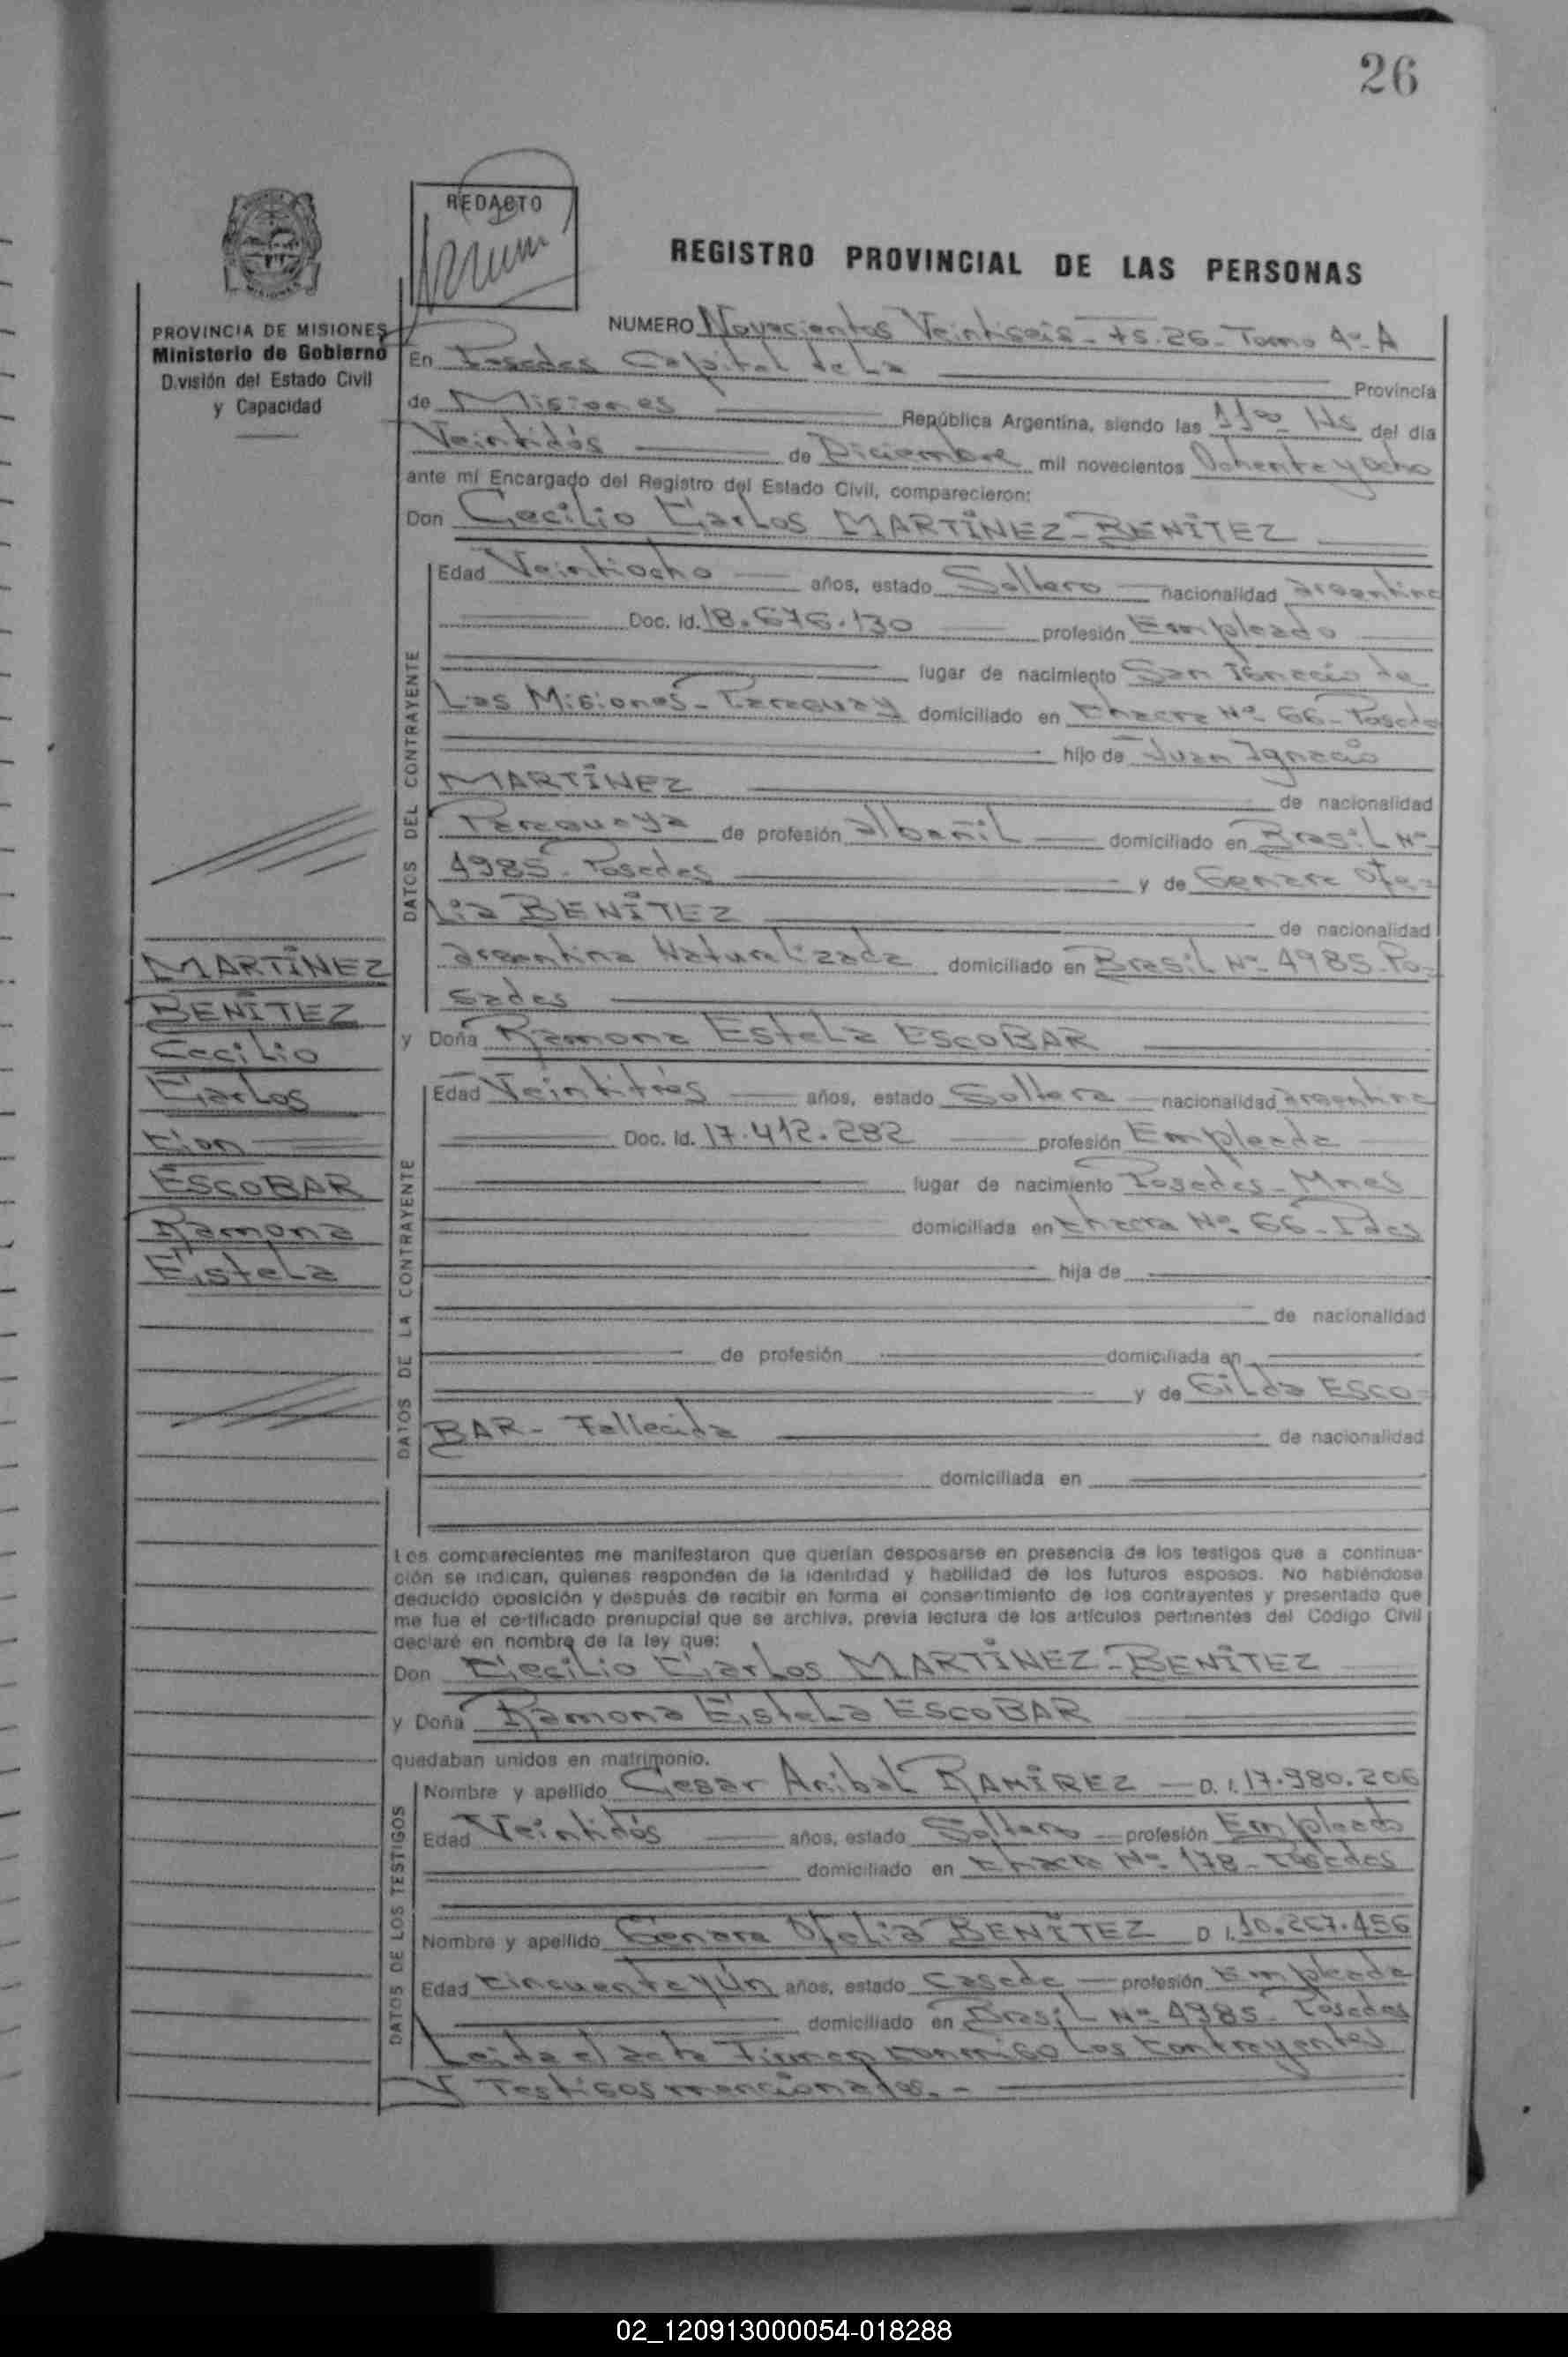 26
REDACTO
REGISTRO PROVINCIAL DE LAS PERSONAS
PROVINCIA DE MISIONES
Ministerio de Gobierno
División del Estado Civil
y Capacidad
NUMERO Novecientos Veintiseis - Fs. 26 - Tomo 4º A
En Posadas Capital de La Provincia
de Misiones República Argentina, siendo las 11 Hs del día
Veintidós de Diciembre mil novecientos Ochenta y ocho
ante mí Encargado del Registro del Estado Civil, comparecieron:
Don Cecilio Carlos MARTÍNEZ - BENÍTEZ
DATOS DEL CONTRAYENTE
Edad Veintiocho años, estado Soltero nacionalidad argentina
Doc. Id. 18.676.130 profesión Empleado
lugar de nacimiento San Ignacio de
Las Misiones - Paraguay domiciliado en Chacra Nº 66 - Posadas
hijo de Juan Ignacio
MARTÍNEZ de nacionalidad
Paraguaya de profesión albañil domiciliado en Brasil Nº
4985 - Posadas y de Genara Ofe-
Lia BENÍTEZ de nacionalidad
argentina Naturalizada domiciliado en Brasil Nº 4985 - Po-
sadas
MARTÍNEZ
BENÍTEZ
Cecilio
Carlos
con
ESCOBAR
Ramona
Estela
y Doña Ramona Estela ESCOBAR
DATOS DE LA CONTRAYENTE
Edad Veintitrés años, estado Soltera nacionalidad argentina
Doc. Id. 17.412.282 profesión Empleada
lugar de nacimiento Posadas - Mnes
domiciliada en Chacra Nº 66 - Pdas
hija de
de nacionalidad
de profesión domiciliada en
y de Gilda ESCO-
BAR - Fallecida de nacionalidad
domiciliada en
Los comparecientes me manifestaron que querían desposarse en presencia de los testigos que a continua-
ción se indican, quienes responden de la identidad y habilidad de los futuros esposos. No habiéndose
deducido oposición y después de recibir en forma el consentimiento de los contrayentes y presentado que
me fue el certificado prenupcial que se archiva, previa lectura de los artículos pertinentes del Código Civil
declaré en nombre de la ley que:
Don Cecilio Carlos MARTÍNEZ - BENÍTEZ
y Doña Ramona Estela ESCOBAR
quedaban unidos en matrimonio.
DATOS DE LOS TESTIGOS
Nombre y apellido Cesar Anibal RAMÍREZ D. I. 17.980.206
Edad Veintidós años, estado Soltero profesión Empleado
domiciliado en Chacra Nº 178 - Posadas
Nombre y apellido Genara Ofelia BENÍTEZ D I. 10.267.456
Edad Cincuenta y Ún años, estado Casada profesión Empleada
domiciliado en Brasil Nº 4985 - Posadas
Leida el acta Firman conmigo Los contrayentes
Y Testigos mencionados. -
02_120913000054-018288